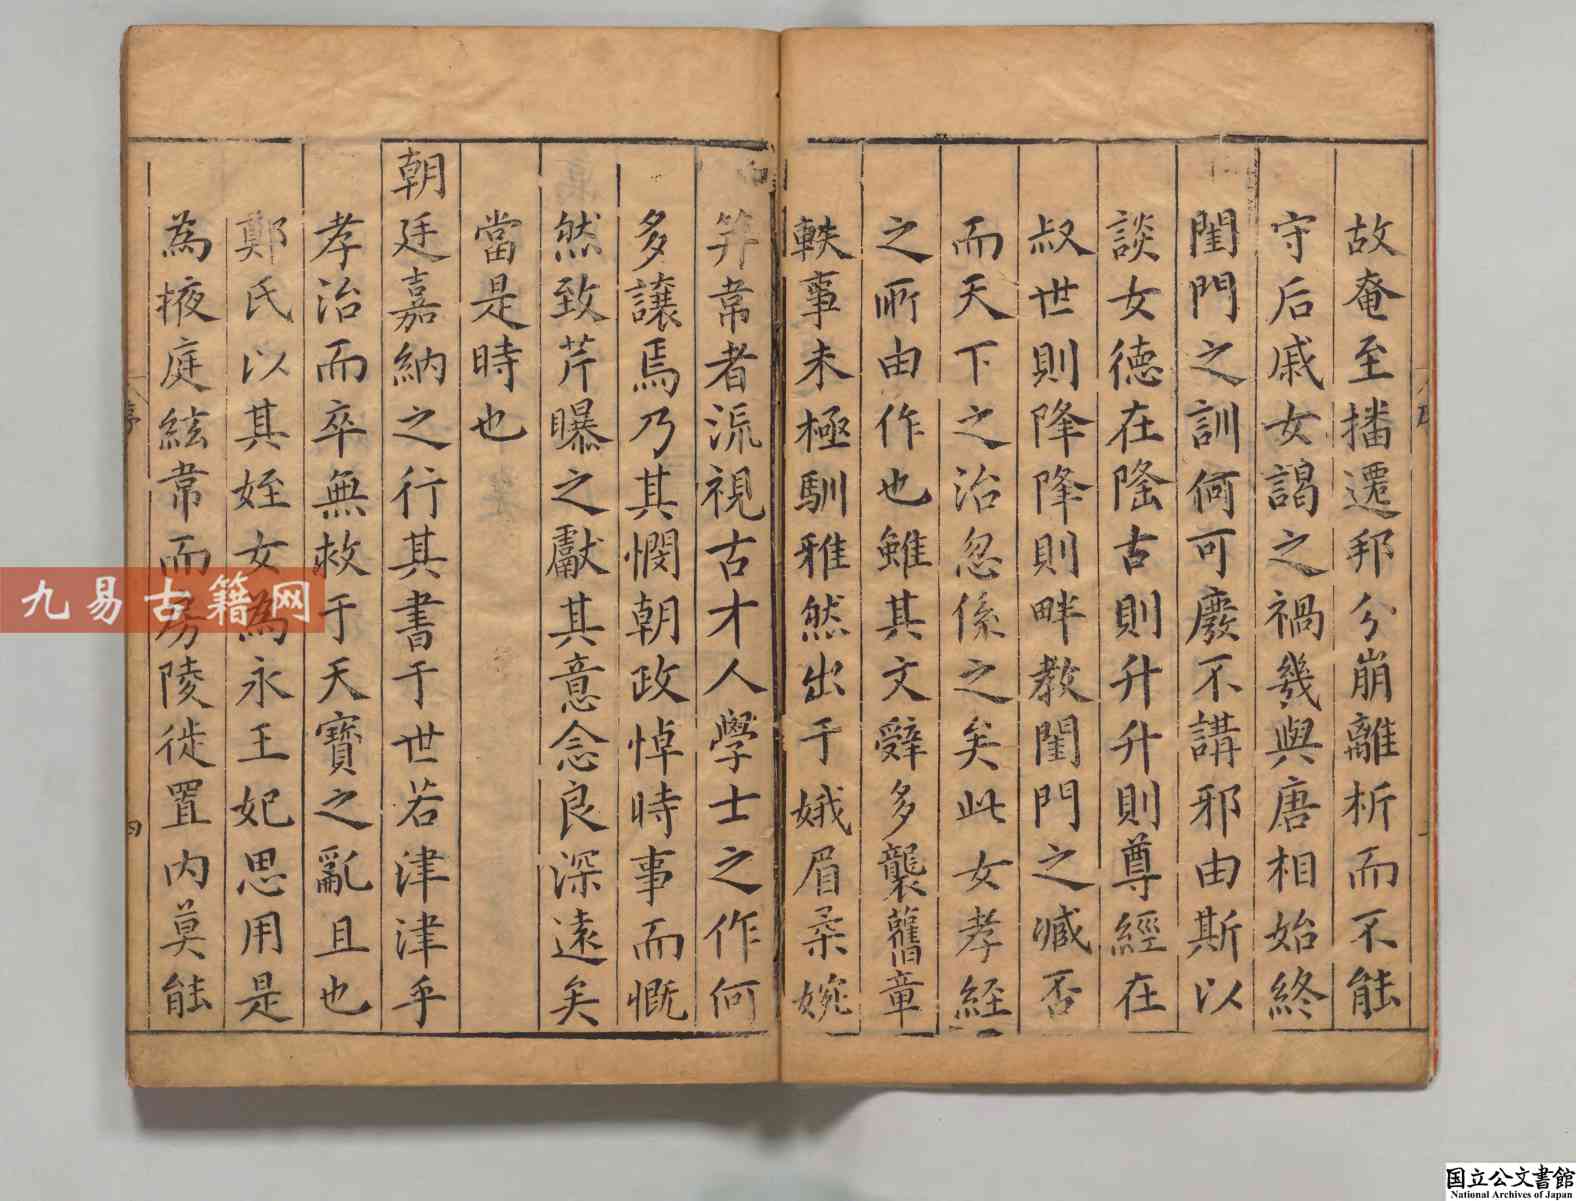 故奄至播遷邦分崩離析而不能
守后戚女謁之禍幾與唐相始終
閨門之訓何可廢不講邪由斯以
談女德在隆古則升升則尊經在
叔世則降降則畔教閨門之臧否
而天下之治忽係之矣此女孝經
之所由作也雖其文辭多襲舊章
軼事未極馴雅然出于娥眉柔婉
笄常者流視古才人學士之作何
多讓焉乃其憫朝政悼時事而慨
然致芹曝之獻其意念良深遠矣
當是時也
朝廷嘉納之行其書于世若津津乎
孝治而卒無救于天寶之亂且也
鄭氏以其姪女為永王妃思用是
為掖庭絃常而房陵徙置内莫能
序
四
九易古籍网
国立公文書館
National Archives of Japan